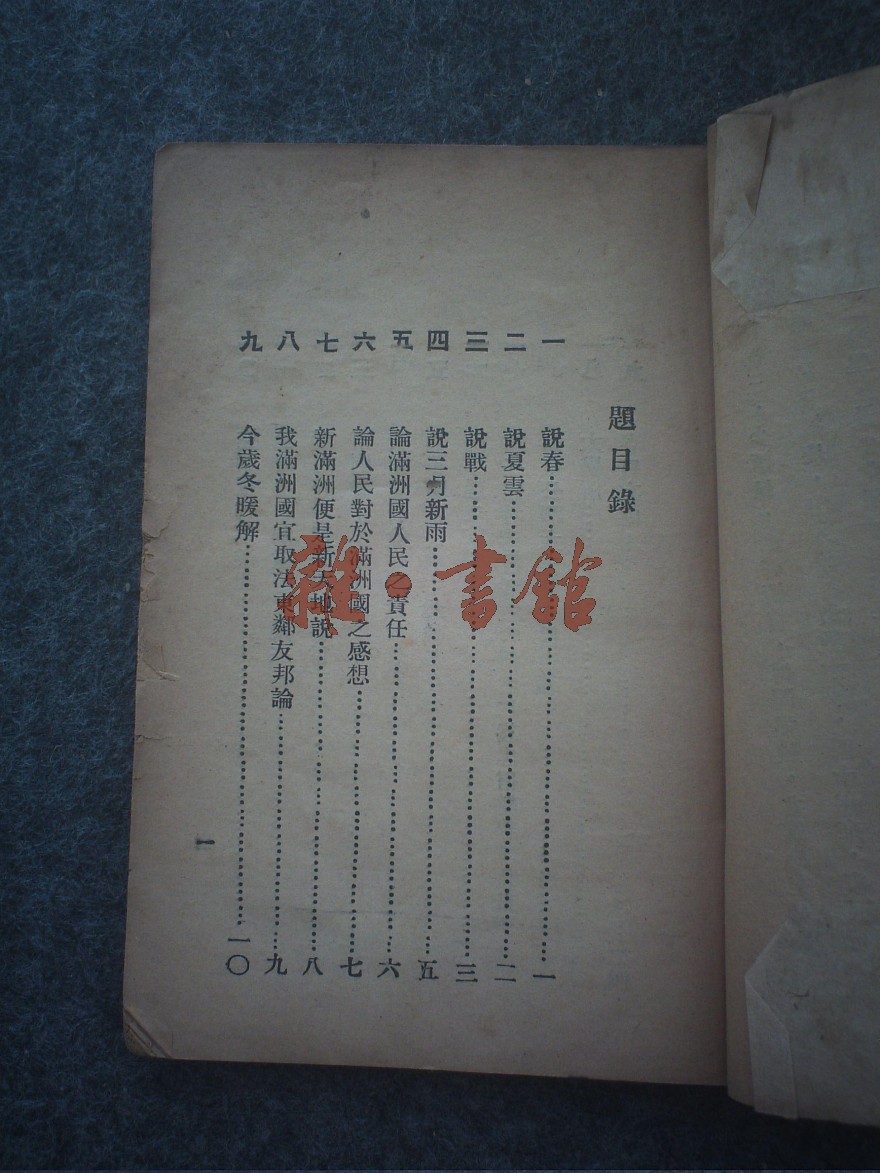 題目錄
一 說春 一
二 說夏雲 二
三 說戰 三
四 說三月新雨 五
五 論滿洲國人民之責任 六
六 論人民對於滿洲國之感想 七
七 新滿洲便是新天地說 八
八 我滿洲國宜取法東鄰友邦論 九
九 今歲冬暖解 一〇
一
雜·書館